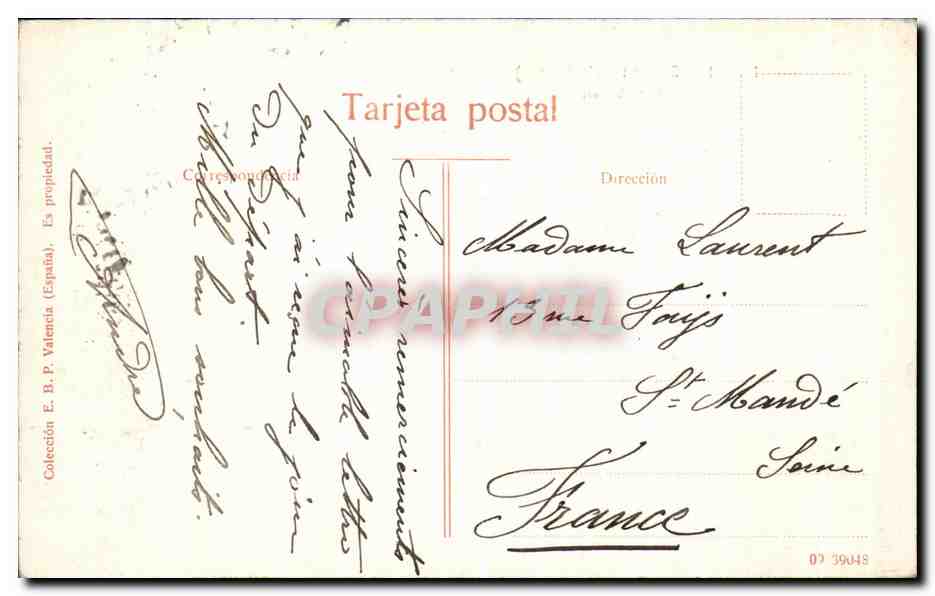 Tarjeta postal
Correspondencia
Dirección
Sincères remerciements
pour l'aimable lettre
que j'ai reçue le jour
du départ.
Mille bons souhaits.
André
Madame Laurent
13 rue Fays
St Mandé
Seine
France
Colección E. B. P. Valencia (España). Es propiedad.
09 39048
CPAPHIL